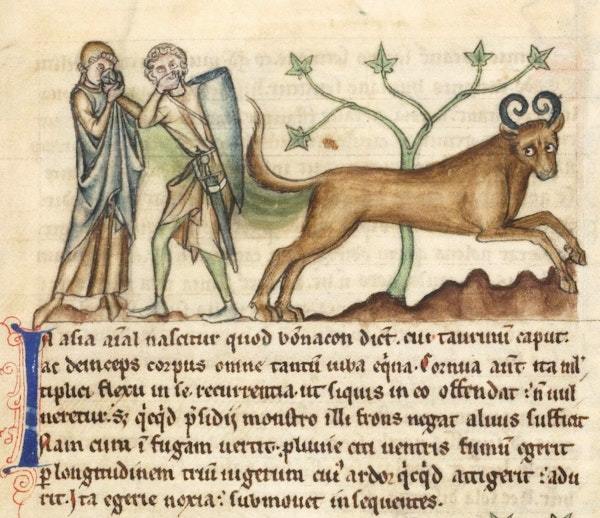 In asia aĩal nascitur quod bõnacon dict̃. cui taurinũ caput:
ac deinceps corpus omne tantũ iuba eq̃na. Cornua aut̃ ita ml̃
tiplici flexu in se recurrentia. ut siquis in eo offendat: ñ uul
neretur. Sꝫ q̃cq̃d p̃sidii monstro illi frons negat aluus sufficit
Nam cum ĩ fugam uertit. pluuie citi uentris fumũ egerit
ꝑ longitudinem triũ iugerum cui᾽ ardor q̃cq̃d attigerit: adu
rit. Ita egerie noxia: submouet insequentes.